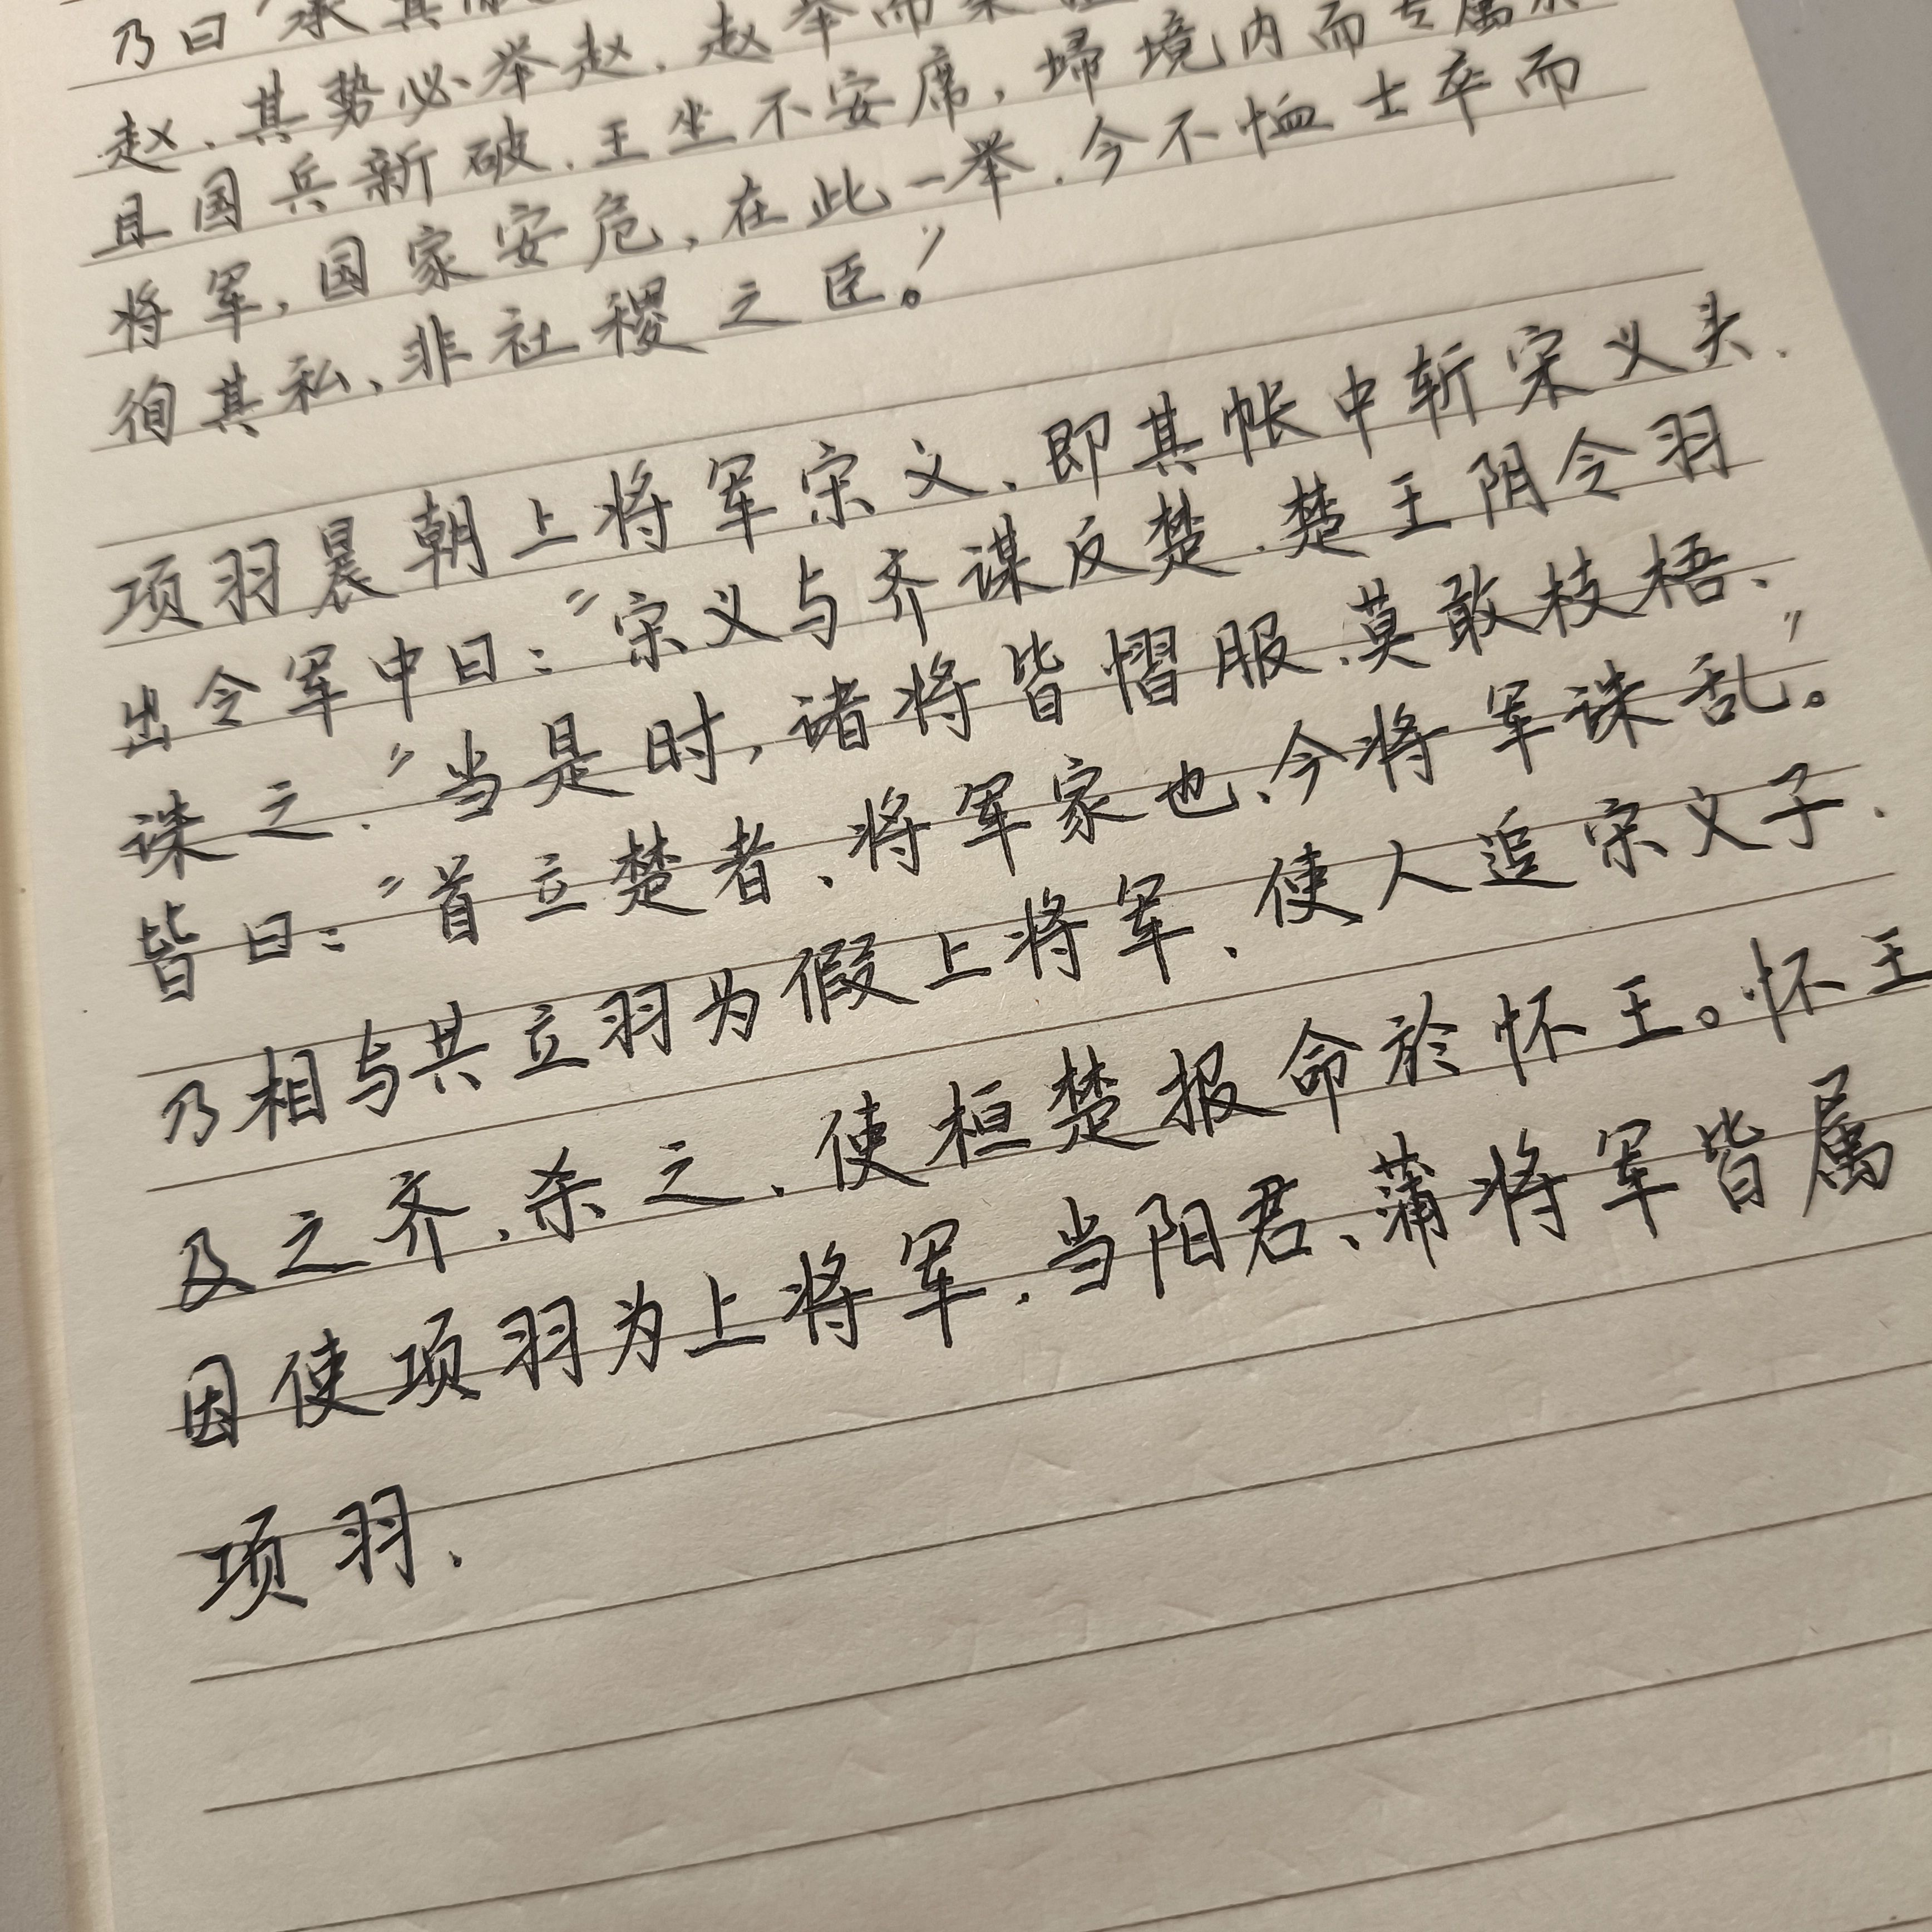 乃曰"承其
赵、其势必举赵、赵举而
且国兵新破、王坐不安席，埽境内而专属
将军，国家安危，在此一举、今不恤士卒而
徇其私、非社稷之臣。"
项羽晨朝上将军宋义、即其帐中斩宋义头、
出令军中曰："宋义与齐谋反楚、楚王阴令羽
诛之、"当是时，诸将皆慴服、莫敢枝梧、
皆曰："首立楚者、将军家也、今将军诛乱。"
乃相与共立羽为假上将军、使人追宋义子、
及之齐、杀之、使桓楚报命於怀王。怀王
因使项羽为上将军、当阳君、蒲将军皆属
项羽、